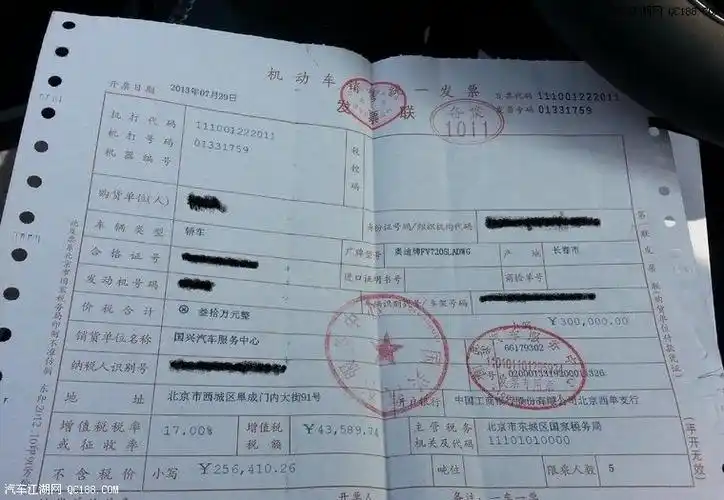 汽车江湖网 QC188.COM
机动车销售统一发票
发票联
开票日期 2013年07月29日
发票代码 111001222011
发票号码 01331759
机打代码 111001222011
机打号码 01331759
机器编号
税控码
1011
购货单位(人)
身份证号码/组织机构代码
车辆类型 轿车
厂牌型号 奥迪牌FV7205LADWG 产地 长春市
合格证号
进口证明书号 商检单号
发动机号码
车辆识别代号/车架号码
价税合计 ⊗ 叁拾万元整 小写 ￥300,000.00
销货单位名称 国兴汽车服务中心
66179302
纳税人识别号
地址 北京市西城区阜成门内大街91号
开户银行 中国工商银行股份有限公司北京西单支行
增值税税率或征收率 17.00% 增值税税额 ￥43,589.74
主管税务机关及代码 北京市东城区国家税务局 11101010000
不含税价 小写 ￥256,410.26 吨位 限乘人数 5
开票人 备注:一车一票
第一联 发票联(购货单位付款凭证)
(手开无效)
汽车江湖网 QC188.COM